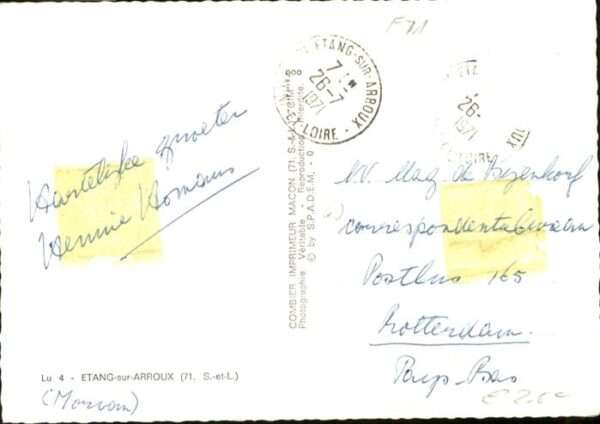 F71
ETANG-SUR-ARROUX
26-7
1971
LOIRE
26-
1971
UX
LOIRE
Hartelijke groeten
Hennie
COMBIER IMPRIMEUR MACON (71. S.-et-L.) "CIM"
Photographie Véritable - Reproduction Interdite.
© by S.P.A.D.E.M. - 0
NV. Mag. de
Postbus 165
Rotterdam.
Pays-Bas
Lu 4 - ETANG-sur-ARROUX (71. S.-et-L.)
(Morvan)